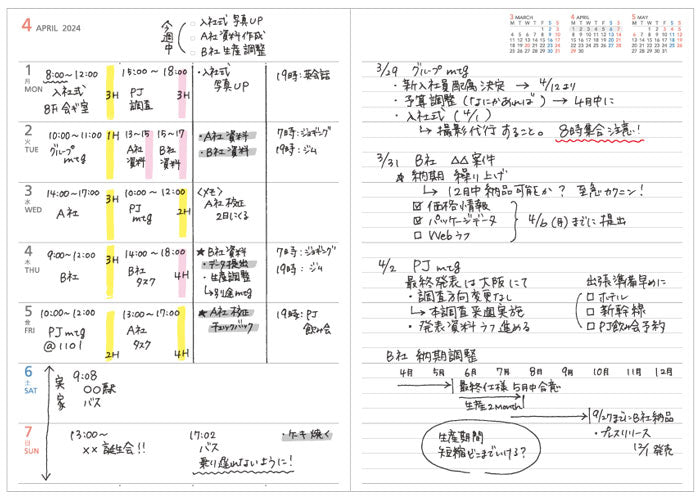 4 APRIL 2024
今週中
□ 入社式 写真UP
□ A社 資料作成
□ B社 生産調整
1
月
MON
8:00〜12:00
入社式
8F 会ギ室
3H
15:00〜18:00
PJ
調査
3H
・入社式
写真UP
19時:英会話
2
火
TUE
10:00〜11:00
グループ
mtg
1H
13〜15
A社
資料
15〜17
B社
資料
・A社 資料
・B社 資料
7時:ジョギング
19時:ジム
3
水
WED
14:00〜17:00
A社
3H
10:00〜12:00
PJ
mtg
2H
〈メモ〉
A社 検証
2日にくる
4
木
THU
9:00〜12:00
B社
3H
14:00〜18:00
B社
タスク
4H
★B社資料
・データ提出
・生産調整
↳別途mtg
7時:ジョギング
19時:ジム
5
金
FRI
10:00〜12:00
PJ mtg
@1101
2H
13:00〜17:00
A社
タスク
4H
★A社 検証
チェックバック
19時:PJ
飲み会
6
土
SAT
実家
9:08
○○駅
バス
7
日
SUN
13:00〜
××誕生会!!
17:02
バス
乗り遅れないように!
・ケーキ焼く
3 MARCH
4 APRIL
5 MAY
3/29 グループmtg
・新入社員配属決定 → 4/12より
・予算調整(なにかあれば) → 4月中に
・入社式(4/1)
↳ 撮影代行すること。 8時集合注意!
3/31 B社 △△案件
★ 納期 繰り上げ
↳ 12月中納品可能か? 至急カクニン!
☑ 価格情報
☑ パッケージデータ
□ Webラフ
4/6(月)までに提出
4/2 PJ mtg
最終発表は大阪にて
・調査方向変更なし
↳ 本調査来週実施
・発表資料ラフ進める
出張準備早めに
□ ホテル
□ 新幹線
□ PJ飲み会予約
B社 納期調整
4月 5月 6月 7月 8月 9月 10月 11月 12月
最終仕様 5月中合意
生産2month
9/27までにB社納品
・プレスリリース
12/1 発売
生産期間
短縮どこまでいける?